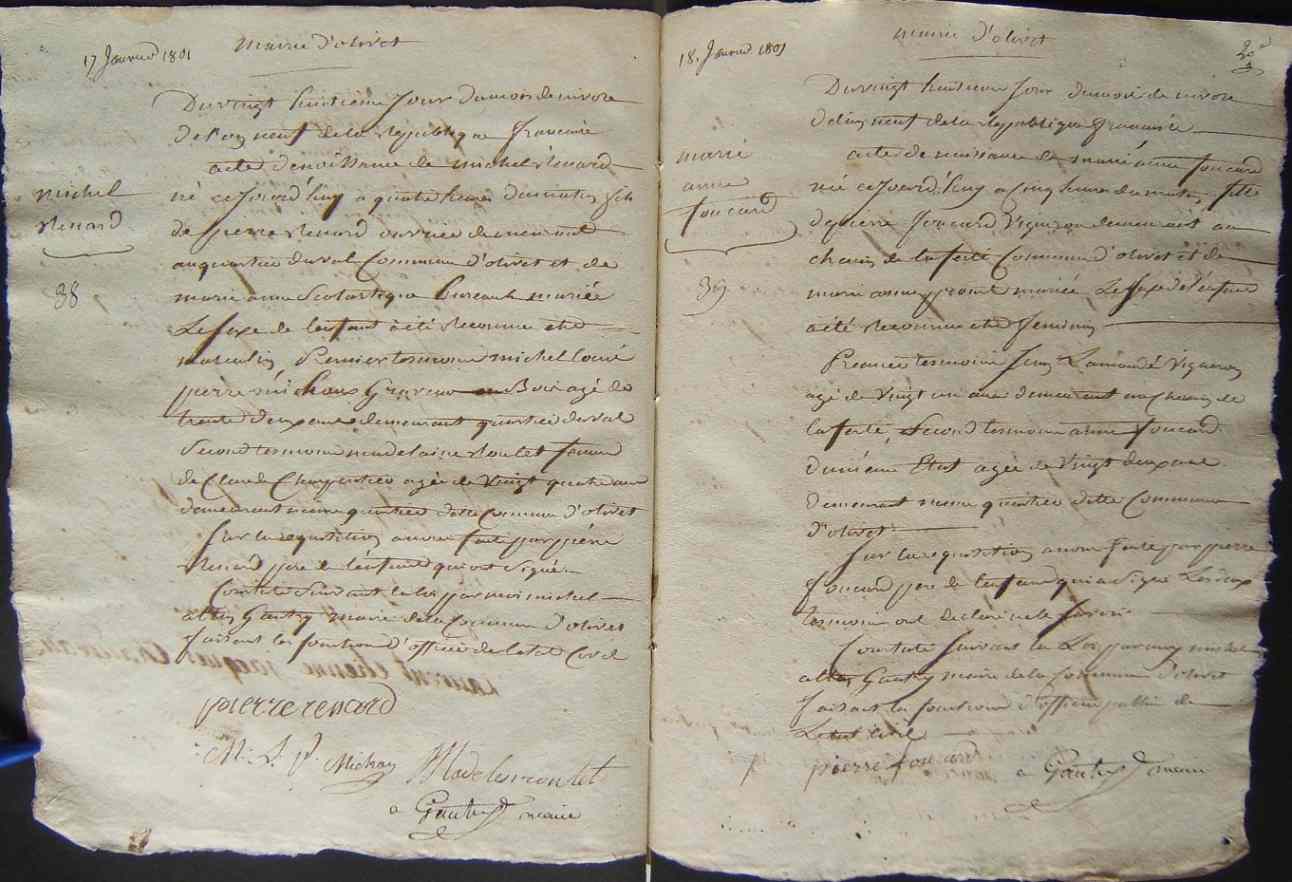 17 Janvier 1801
Mairie d'olivet
Du vingt huitieme Jour du mois de nivose
de l'an neuf de la Republique francaise
acte de naissance de michel Renard
né ce Jourd'huy a quatre heures du matin fils
de pierre Renard ouvrier demeurant
au quartier du val Commune d'olivet et de
marie anne Scolastique Bureau mariée
Le sexe de lenfant a été Reconnu etre
masculin Premier tesmoin michel Louis
pierre michau Graveur en Bois agé de
trente deux ans demeurant quartier du val
Second tesmoin madelaine Roulet femme
de Claude Charpentier agée de vingt quatre ans
demeurant meme quartier ditte Commune d'olivet
Sur la requisition a nous faite par pierre
Renard pere de l'enfant qui ont Signé
Constaté Suivant la loi par moi michel
altin Gautry maire de la Commune d'olivet
faisant les fonctions d'officier de letat Civil
michel
Renard
38
pierre renard
M. L. P. Michau Madelene roulet
a Gautry maire
18. Janvier 1801
mairie d'olivet
Du vingt huitieme Jour du mois de nivose
de l'an neuf de la Republique francaise
acte de naissance de marie anne foucard
née ce Jourd'huy a Cinq heures du matin fille
de pierre foucard Vigneron demeurant au
chemin de la ferté Commune d'olivet et de
marie anne mariée Le sexe de l'enfant
a été Reconnu etre feminin
Premier tesmoin Vigneron
agé de Vingt un ans demeurant au Chemin de
la ferté, Second tesmoin anne foucard
du meme Etat agée de Vingt deux ans
demeurant meme quartier ditte Commune
d'olivet
Sur la requisition a nous faite par pierre
foucard pere de l'enfant qui a Signé Les deux
tesmoins ont declaré ne le Savoir
Constaté Suivant la Loi par moy michel
altin Gautry maire de la Commune d'olivet
faisant les fonctions d'officier public de
Letat Civil
marie
anne
foucard
39
pierre foucard a Gautry maire